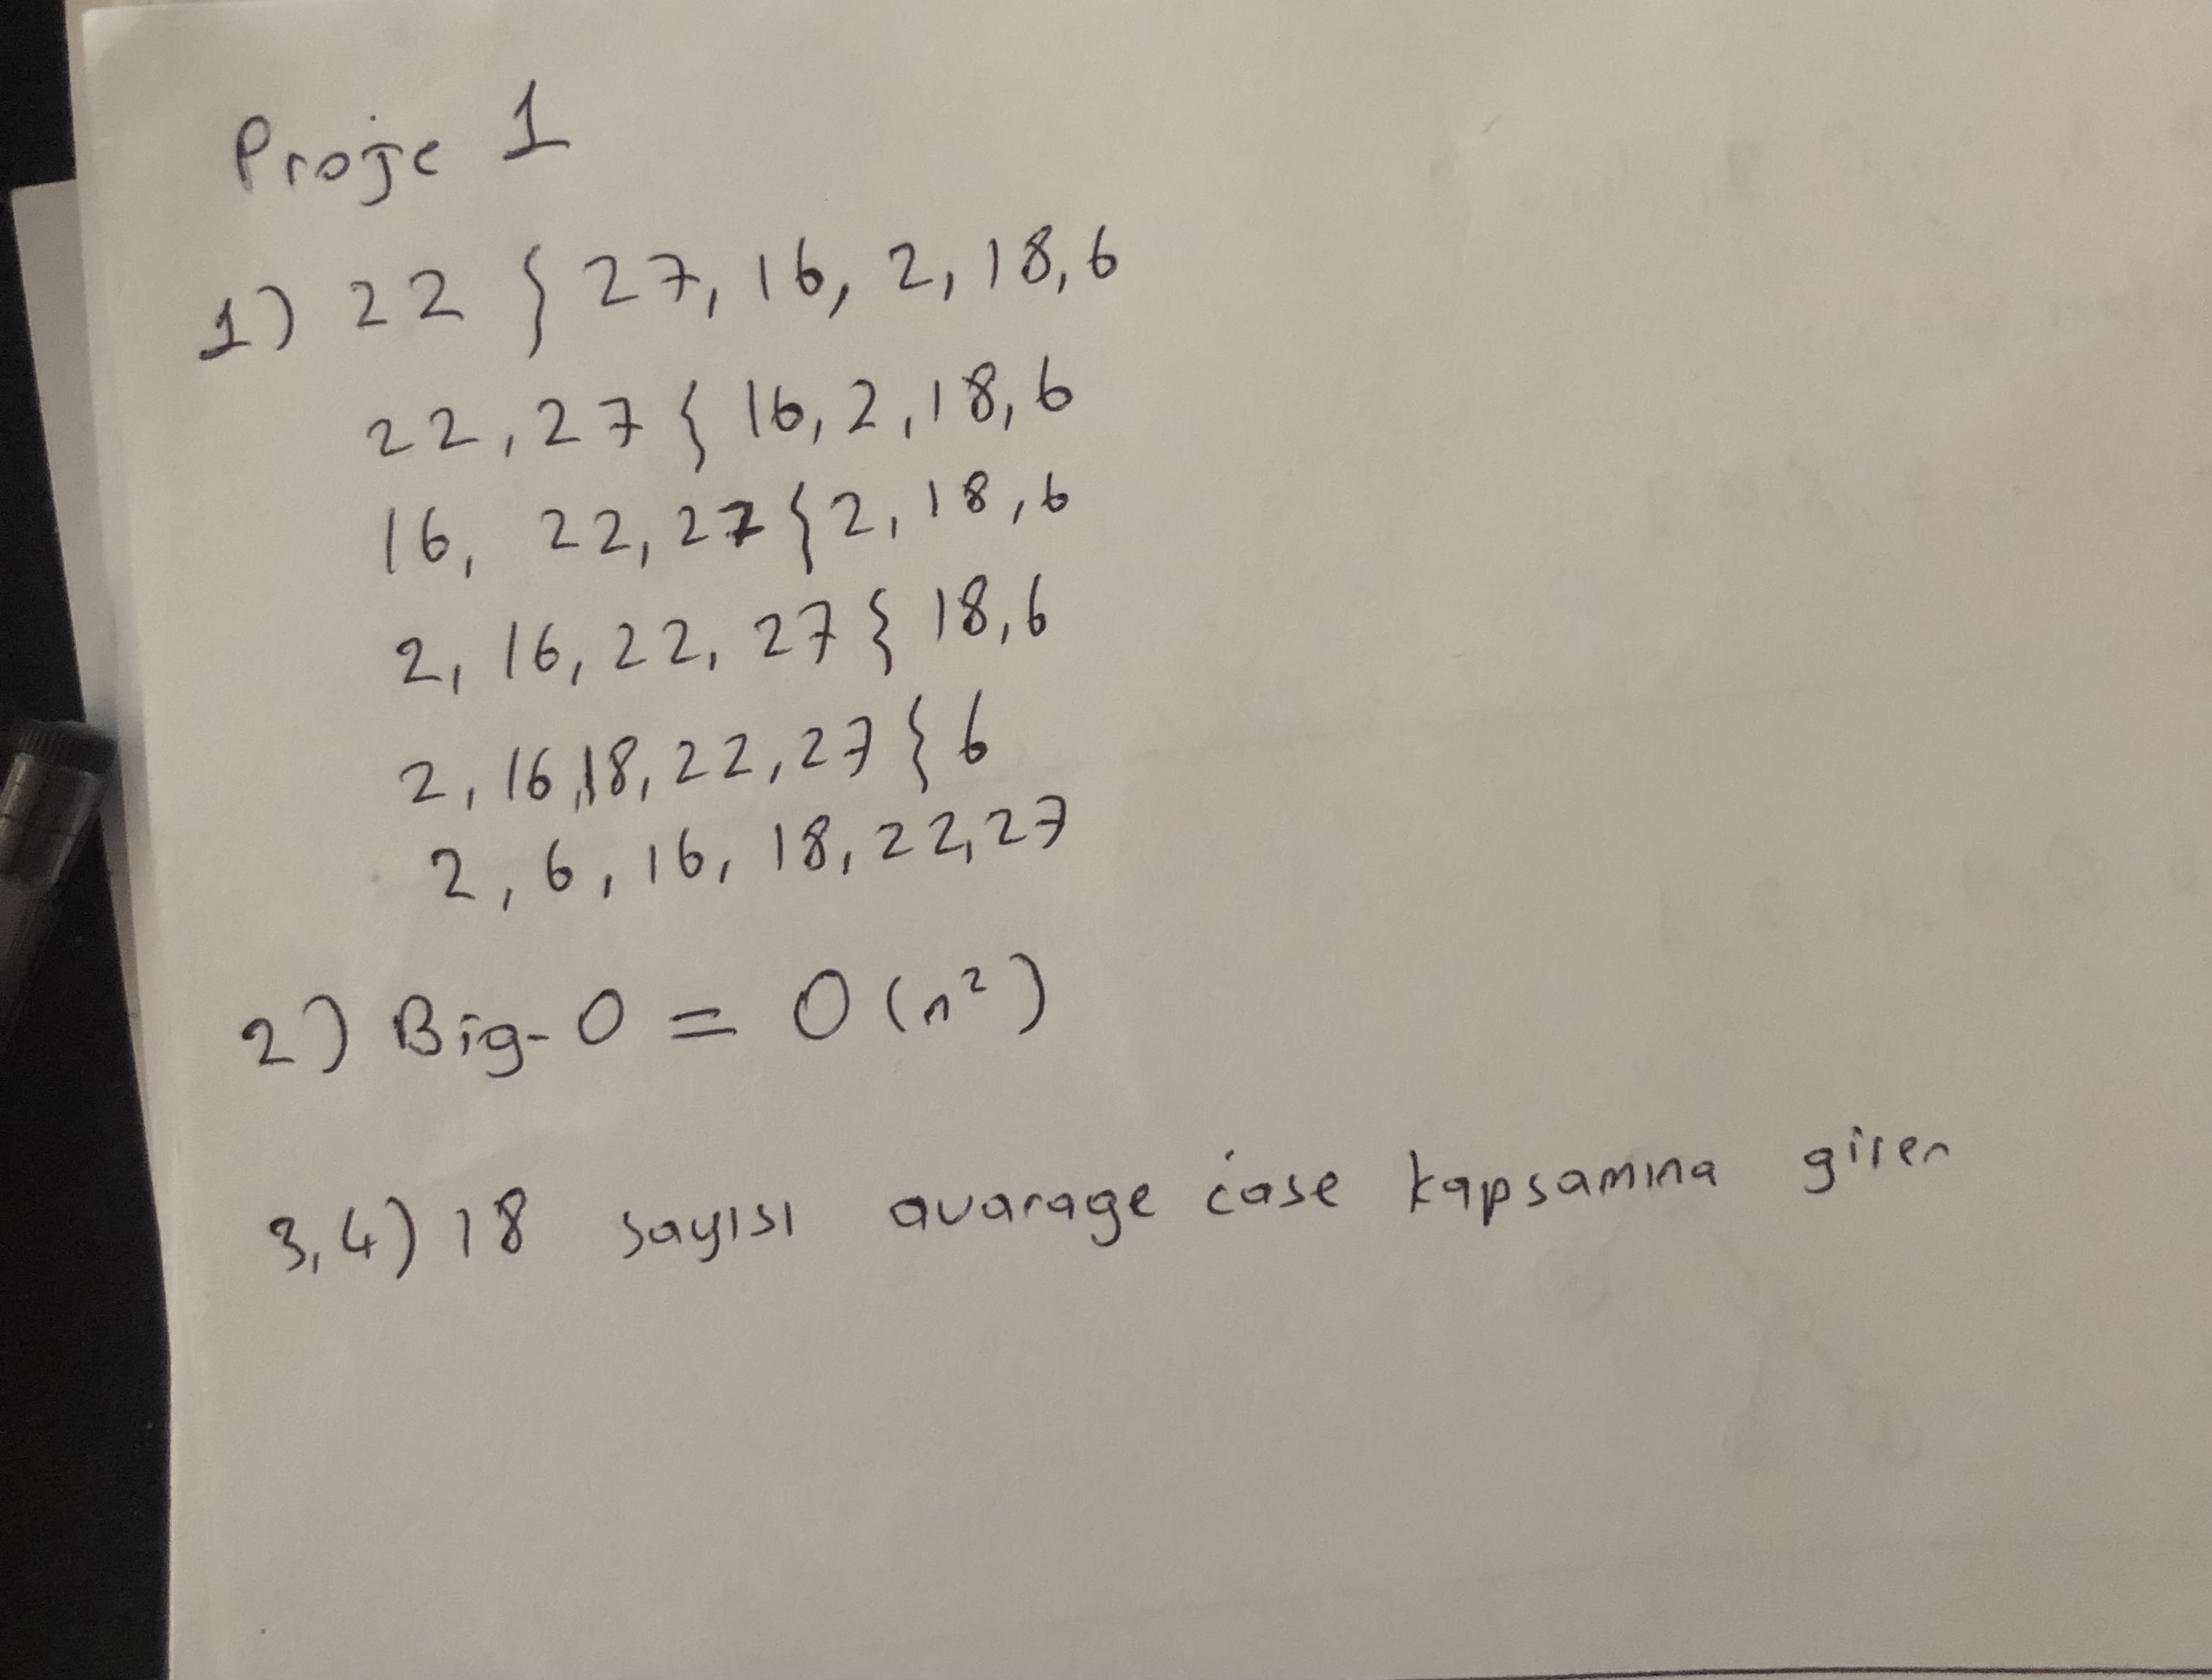 Proje 1
1) 22 } 27, 16, 2, 18, 6
22, 27 { 16, 2, 18, 6
16, 22, 27 { 2, 18, 6
2, 16, 22, 27 } 18, 6
2, 16, 18, 22, 27 { 6
2, 6, 16, 18, 22, 27
2) Big-O = O(n²)
3,4) 18 sayısı avarage case kapsamına girer